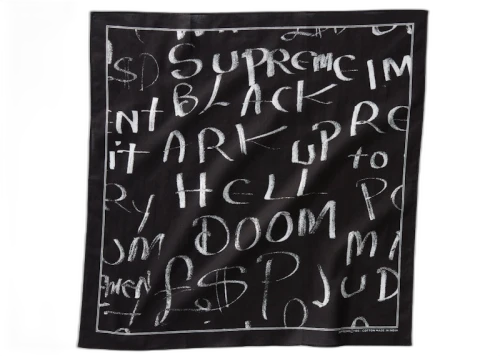 $D SUPREME IM
BLACK
ENT ARK UP PRE
it to
RY HELL PO
UM DOOM MA
MEN £$P JUD